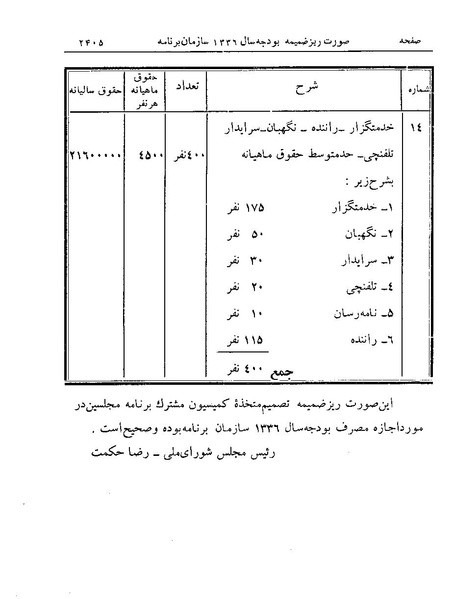 صفحه صورت ریز ضمیمه بودجه سال ۱۳۳۶ سازمان برنامه ۲۴۰۵
شماره شرح تعداد حقوق ماهیانه هر نفر حقوق سالیانه
۱۴ خدمتگزار ـ راننده ـ نگهبان ـ سرایدار
تلفنچی ـ حد متوسط حقوق ماهیانه ۴۰۰ نفر ۴۵۰۰ ۲۱۶۰۰۰۰۰
بشرح زیر :
۱ـ خدمتگزار ۱۷۵ نفر
۲ـ نگهبان ۵۰ نفر
۳ـ سرایدار ۳۰ نفر
۴ـ تلفنچی ۲۰ نفر
۵ـ نامه رسان ۱۰ نفر
۶ـ راننده ۱۱۵ نفر
جمع ۴۰۰ نفر
این صورت ریز ضمیمه تصمیم متخذهٔ کمیسیون مشترك برنامه مجلسین در
مورد اجازه مصرف بودجه سال ۱۳۳۶ سازمان برنامه بوده و صحیح است .
رئیس مجلس شورای ملی ـ رضا حکمت